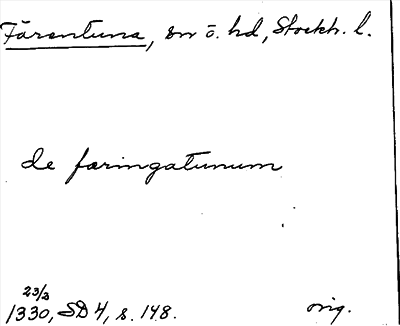 Färentuna, sn o. hd, Stockh. l.
de færingatunum
23/3
1330, SD 4, s. 148. orig.